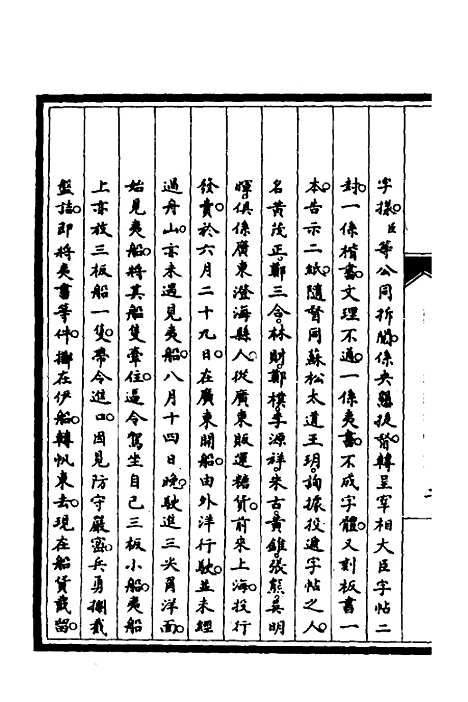 字樣臣等公同拆閱係夬醞提督轉呈宰相大臣字帖二
封一係楷書文理不通一係夷書不成字體又刻板書一
本告示二紙隨督同蘇松太道王玥詢據投遞字帖之人
名黃茂正鄭三合林財鄭樸李源祥朱古黃雄張熊吳明
暉俱係廣東澄海縣人從廣東販運糖貨前來上海投行
發賣於六月二十九日在廣東開船由外洋行駛並未經
過舟山亦未遇見夷船八月十四日晚駛進三尖角洋面
始見夷船將其船隻牽住逼令駕坐自己三板小船夷船
上亦放三板船一隻帶令進口因見防守嚴密兵勇擱截
盤詰即將夷書等件擲在伊船轉帆東去現在船貨截留
二